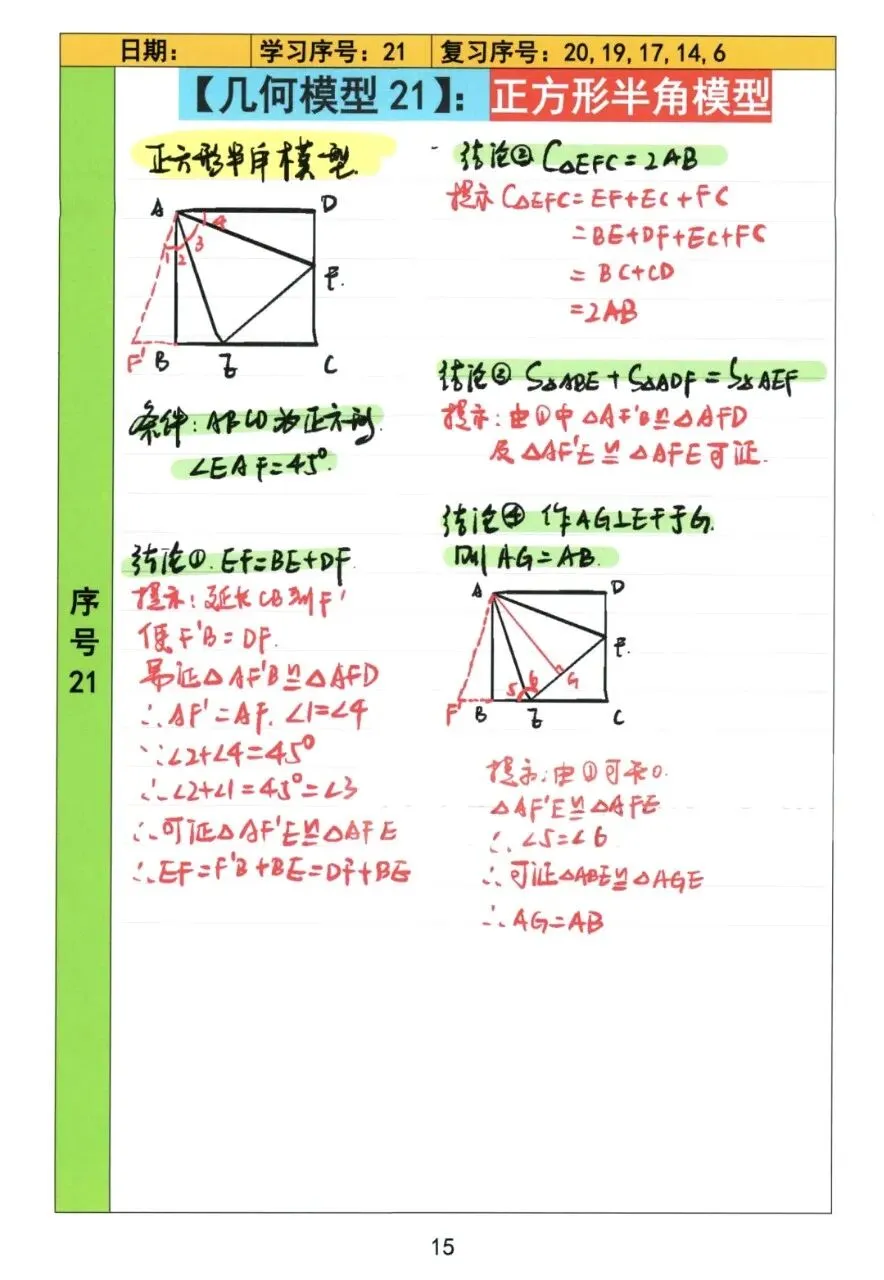 日期：
学习序号：21
复习序号：20,19,17,14,6
【几何模型 21】：正方形半角模型
序号21
正方形半角模型.
A
D
1
2
3
4
F.
F'
B
E
C
条件：ABCD为正方形.
∠EAF=45°.
结论①. EF=BE+DF.
提示：延长CB到F'
使F'B=DF.
易证△AF'B≌△AFD
∴AF'=AF. ∠1=∠4
∵∠2+∠4=45°
∴∠2+∠1=45°=∠3
∴可证△AF'E≌△AFE
∴EF=F'B+BE=DF+BE
结论② C△EFC=2AB
提示 C△EFC=EF+EC+FC
=BE+DF+EC+FC
=BC+CD
=2AB
结论③ S△ABE+S△ADF=S△AEF
提示：由①中△AF'B≌△AFD
及△AF'E≌△AFE可证.
结论④ 作AG⊥EF于G.
则AG=AB.
A
D
F.
5
6
G
F'
B
E
C
提示：由①可知.
△AF'E≌△AFE
∴∠5=∠6
∴可证△ABE≌△AGE
∴AG=AB
15